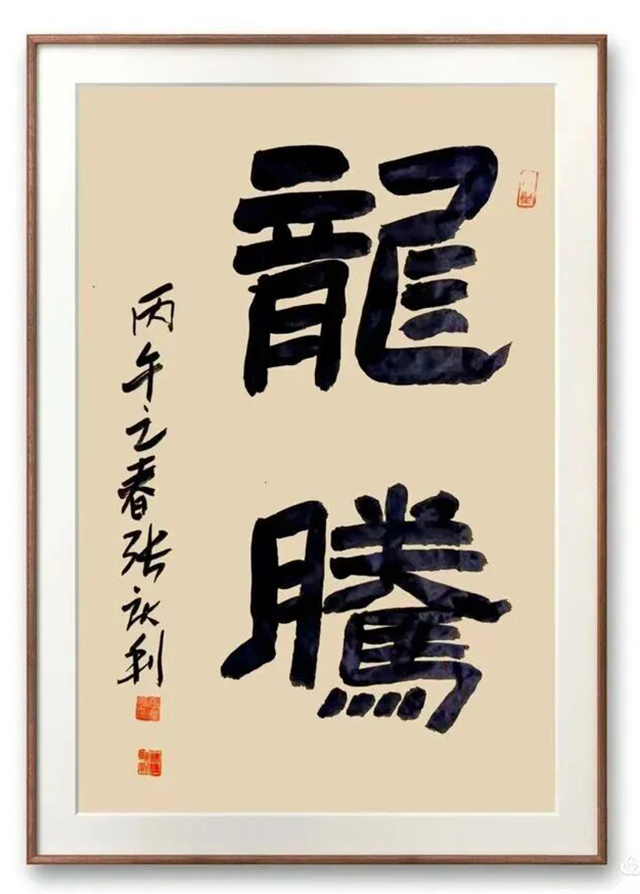 龍騰
丙午之春张利